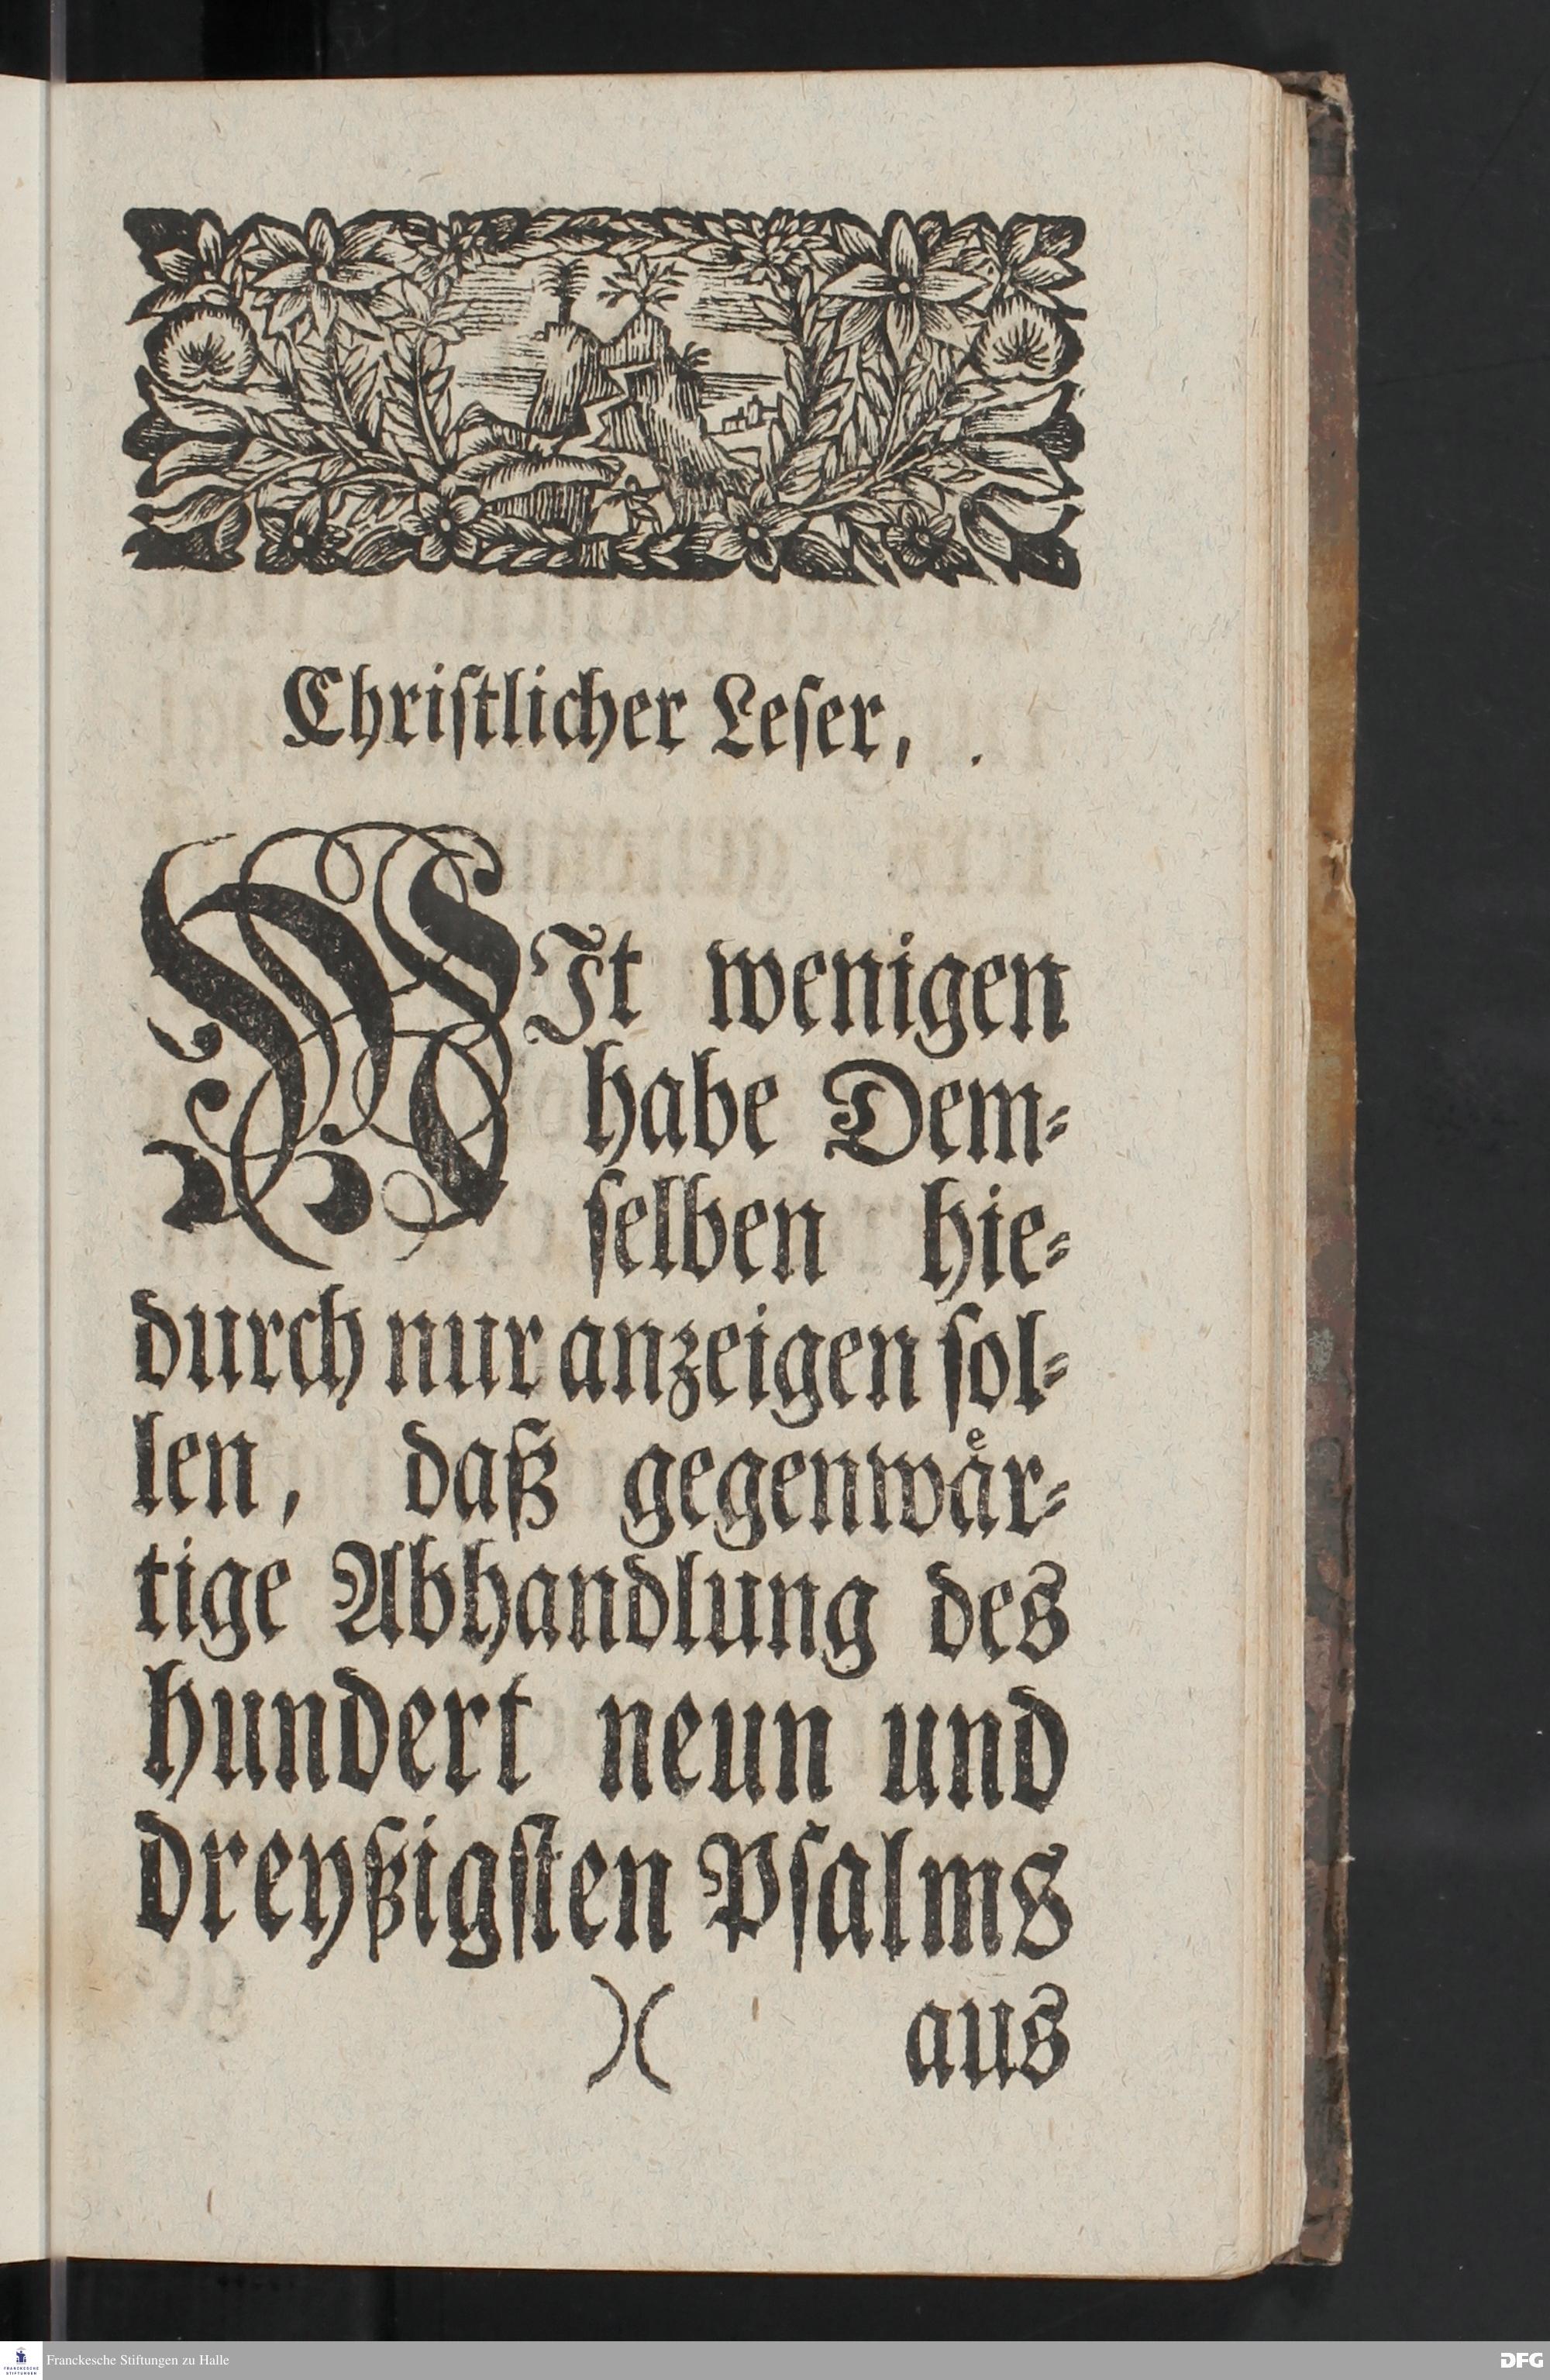 Chriſtlicher Leſer,
MIt wenigen
habe Dem⸗
ſelben hie⸗
durch nur anzeigen ſol⸗
len, daß gegenwaͤr⸗
tige Abhandlung des
hundert neun und
dreyßigſten Pſalms
)( aus
FRANCKESCHE STIFTUNGEN
Franckesche Stiftungen zu Halle
DFG